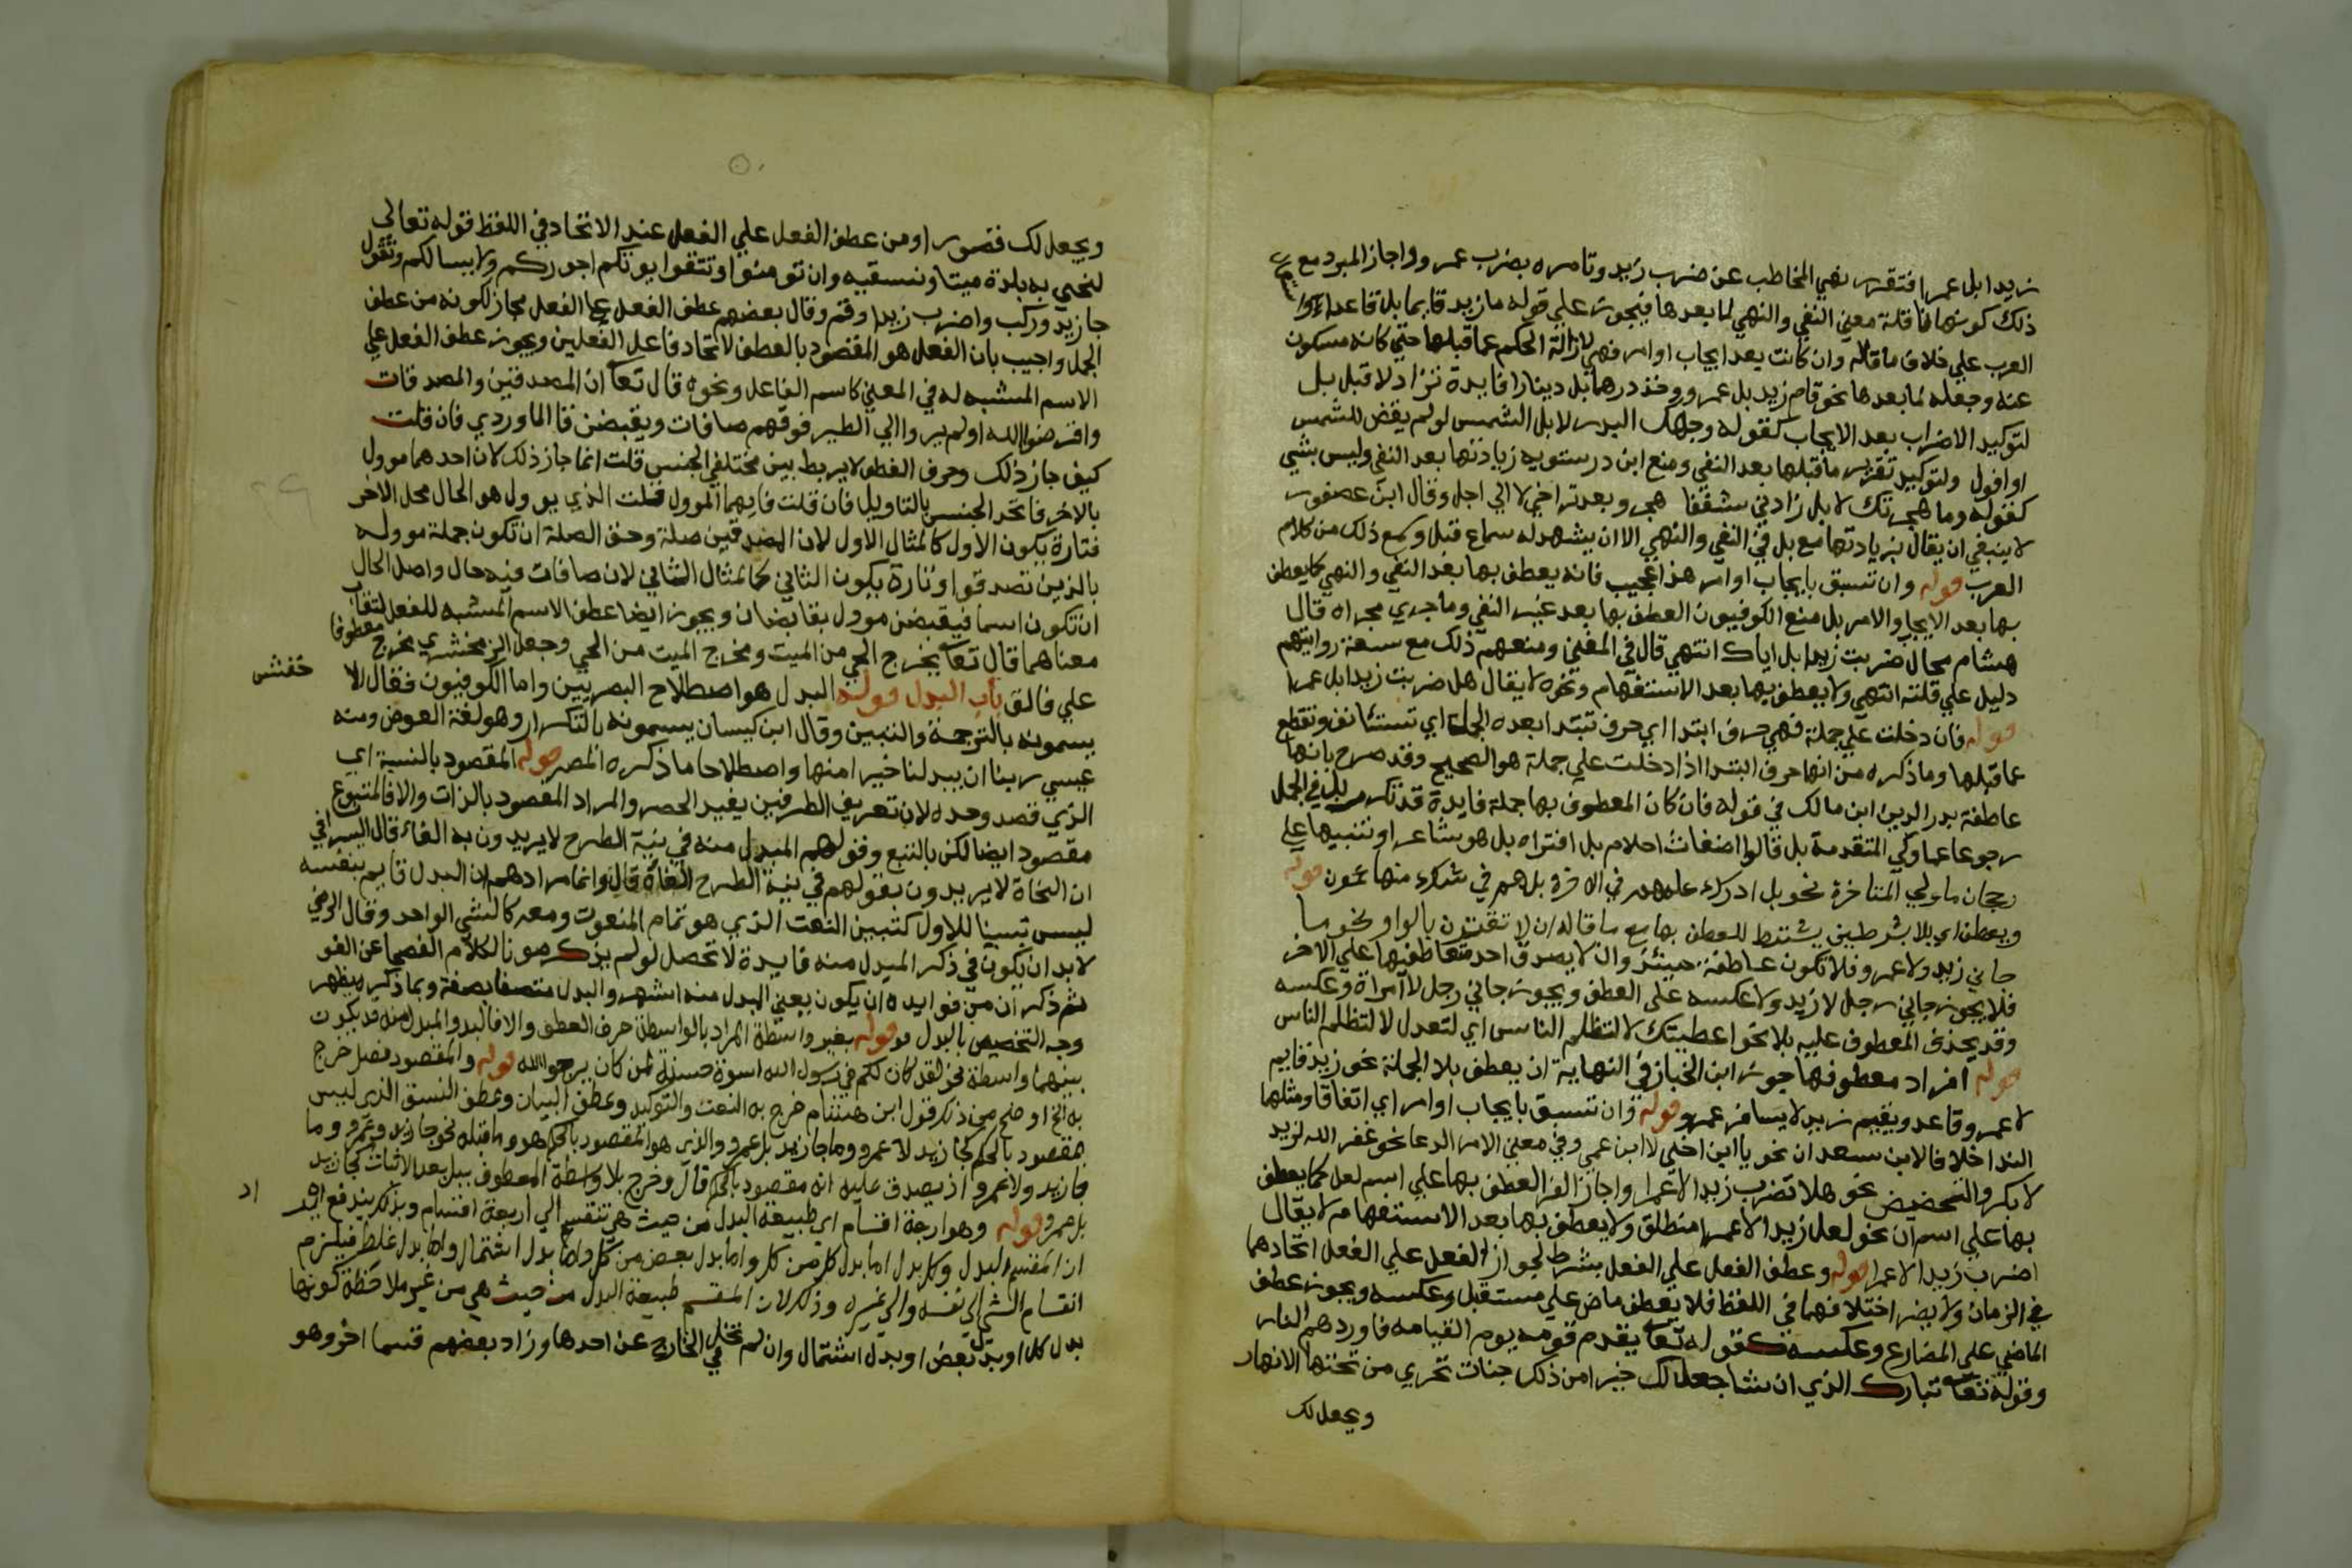 زيدا بل عمرا فتقرر نهي المخاطب عن ضرب زيد وتامره بضرب عمرو واجاز المبرد مع
ذلك كونها ناقلة معني النفي والنهي لما بعدها فيجوز علي قوله ما زيد قايما بل قاعدا
العرب علي خلاف ما قاله وان كانت بعد ايجاب او امر فهي لازالة الحكم عما قبلها حتي كانه مسكوت
عنه وجعله لما بعدها نحو قام زيد بل عمرو وخذ درهما بل دينارا فايدة تزاد لا قبل بل
لتوكيد الاضراب بعد الايجاب كقوله وجهك البدر لا بل الشمس لو لم يقض للشمس
او افول ولتوكيد تقرير ما قبلها بعد النفي ومنع ابن درستويه زيادتها بعد النفي وليس بشي
كقوله وما هجرتك لا بل زادني شغفا هجر وبعد تراخي لا الي اجل وقال ابن عصفور
لا ينبغي ان يقال بزيادتها مع بل في النفي والنهي الا ان يشهد له سماع قبل وسمع ذلك من كلام
العرب قوله وان تسبق بايجاب او امر هذا عجيب فانه يعطف بها بعد النفي والنهي كما يعطف
بها بعد الايجاب والامر بل منع الكوفيون العطف بها بعد غير النفي وما جري مجراه قال
هشام محال ضربت زيدا بل اياك انتهي قال في المغني ومنعهم ذلك مع سعة روايتهم
دليل علي قلته انتهي ولا يعطف بها بعد الاستفهام ونحوه لا يقال هل ضربت زيدا بل عمرا
قوله فان دخلت علي جملة فهي حرف ابتدا اي حرف تبتدا بعده الجملة اي تستئانف وتقطع
عما قبلها وما ذكره من انها حرف ابتدا اذا دخلت علي جملة هو الصحيح وقد صرح بانها
عاطفة بدر الدين ابن مالك في قوله فان كان المعطوف بها جملة فايدة قد تكرر بل في الجمل
رجوعا عما ولي المتقدمة بل قالوا اضغاث احلام بل افتراه بل هو شاعر او تنبيها علي
رجحان ما ولي المتاخرة نحو بل ادرك علمهم في الاخرة بل هم في شك منها عمون قوله
ويعطف اي بلا بشرطين يشترط للعطف بها مع ما قاله ان لا تقترن بالواو نحو ما
جاني زيد ولا عمرو فلا تكون عاطفة حينئذ وان لا يصدق احد متعاطفيها علي الاخر
فلا يجوز جاني رجل لا زيد ولا عكسه علي العطف ويجوز جاني رجل لا امراة وعكسه
وقد يحذف المعطوف عليه بلا نحو اعطيتك لا لتظلم الناس اي لتعدل لا لتظلم الناس
قوله افراد معطوفها جوز ابن الخباز في النهاية ان يعطف بلا الجملة نحو زيد قايم
لا عمرو قاعد ويقيم زيد لا يسافر عمرو قوله وان تسبق بايجاب او امر اي اتفاقا ومثلها
الندا خلافا لابن سعدان نحو يا ابن اخي لا ابن عمي وفي معني الامر الدعا نحو غفر الله لزيد
لا بكر والتحضيض نحو هلا تضرب زيدا لا عمرا واجاز الفرا العطف بها علي اسم لعل كما يعطف
بها علي اسم ان نحو لعل زيدا لا عمرا منطلق ولا يعطف بها بعد الاستفهام لا يقال
اضرب زيدا لا عمرا قوله وعطف الفعل علي الفعل بشرط لجواز الفعل علي الفعل اتحادهما
في الزمان ولا يضر اختلافهما في اللفظ فلا يعطف ماض علي مستقبل وعكسه ويجوز عطف
الماضي علي المضارع وعكسه كقوله تعا يقدم قومه يوم القيامه فاوردهم النار
وقوله تعا تبارك الذي ان شا جعل لك خيرا من ذلك جنات تجري من تحتها الانهار
ويجعل لك
ويجعل لك قصورا ومن عطف الفعل علي الفعل عند الاتحاد في اللفظ قوله تعالي
لنحيي به بلدة ميتا ونسقيه وان تومنوا وتتقوا يوتكم اجوركم ولا يسالكم وتقول
جا زيد وركب واضرب زيدا وقم وقال بعضهم عطف الفعل علي الفعل مجاز لكونه من عطف
الجمل واجيب بان الفعل هو المقصود بالعطف لاتحاد فاعل الفعلين ويجوز عطف الفعل علي
الاسم المشبه له في المعني كاسم الفاعل ونحوه قال تعا ان المصدقين والمصدقات
واقرضوا الله اولم يروا الي الطير فوقهم صافات ويقبضن قا الماوردي فان قلت
كيف جاز ذلك وحرف العطف لا يربط بين مختلفي الجنس قلت انما جاز ذلك لان احدهما موول
بالاخر فاتحد الجنس بالتاويل فان قلت فايهما الموول قلت الذي يوول هو الحال محل الاخر
فتارة يكون الاول كالمثال الاول لان المصدقين صلة وحق الصلة ان تكون جملة موولة
بالذين تصدقوا وتارة يكون الثاني كالمثال الثاني لان صافات فيه حال واصل الحال
ان تكون اسما فيقبضن موول بقابضات ويجوز ايضا عطف الاسم المشبه للفعل لتقارب
معناهما قال تعا يخرج الحي من الميت ومخرج الميت من الحي وجعل الزمخشري مخرج معطوفا
علي فالق باب البدل قوله البدل هو اصطلاح البصريين واما الكوفيون فقال الا
خفش
يسمونه بالترجمة والتبين وقال ابن كيسان يسمونه بالتكرار وهو لغة العوض ومنه
عيسي ربنا ان يبدلنا خيرا منها واصطلاحا ما ذكره المصر قوله المقصود بالنسبة اي
الذي قصد وحده لان تعريف الطرفين يفيد الحصر والمراد المقصود بالذات والا فالمتبوع
مقصود ايضا لكن بالتبع وقولهم المبدل منه في نية الطرح لا يريدون به الغاء قال السيرافي
ان النحاة لا يريدون بقولهم في نية الطرح الغاه قال وانما مرادهم ان البدل قايم بنفسه
ليس تبينا للاول كتبين النعت الذي هو تمام المنعوت ومعه كالشي الواحد وقال الرضي
لا بد ان يكون في ذكر المبدل منه فايدة لا تحصل لو لم يذكر صونا لكلام الفصحا عن اللغو
ثم ذكر ان من فوايده ان يكون يعني المبدل منه اشهر والبدل متصفا بصفة وبما ذكر يظهر
وجه التخصيص بالبدل قوله بغير واسطة المراد بالواسطة حرف العطف والا فالبدل والمبدل منه قد يكون
بينهما واسطة نحو لقد كان لكم في رسول الله اسوة حسنة لمن كان يرجو الله قوله والمقصود فصل خرج
به الخ اوضح من ذكر قول ابن هشام خرج به النعت والتوكيد وعطف البيان وعطف النسق الذي ليس
مقصود بالحكم كجا زيد لا عمرو وما جا زيد بل عمرو والذي هو المقصود بالحكم هو وما قبله نحو جا زيد وعمرو وما
جا زيد ولا عمرو اذ يصدق عليه انه مقصود بالحكم قال وخرج بلا واسطة المعطوف ببل بعد الاثبات كجا زيد
بل عمرو قوله وهو اربعة اقسام اي طبيعة البدل من حيث هي تنقسم الي اربعة اقسام وبذلك يندفع
اد
ان المقسم البدل وكل بدل اما بدل كل من كل واما بدل بعض من كل واما بدل اشتمال واما بدل غلط فيلزم
انقسام الشي الي نفسه والي غيره وذلك لان المقسم طبيعة البدل من حيث هي من غير ملاحظة كونها
بدل كل او بدل بعض او بدل اشتمال وان لم تخل في الخارج عن احدها وزاد بعضهم قسما اخر وهو